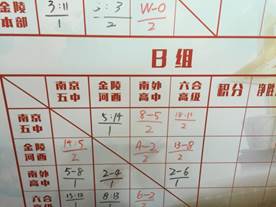 金陵 3:11 :3 W-0
本部 1 2 2
B组
南京 金陵 南外 六合 积分 净胜
五中 河西 高中 高级
南京 5:14 8-5
五中 1 2 2
金陵 14:5 13-8
河西 2 2 2
南外 5-8 2-4 2-6
高中 1 1 1
六合 8:13 6-2
高级 1 2